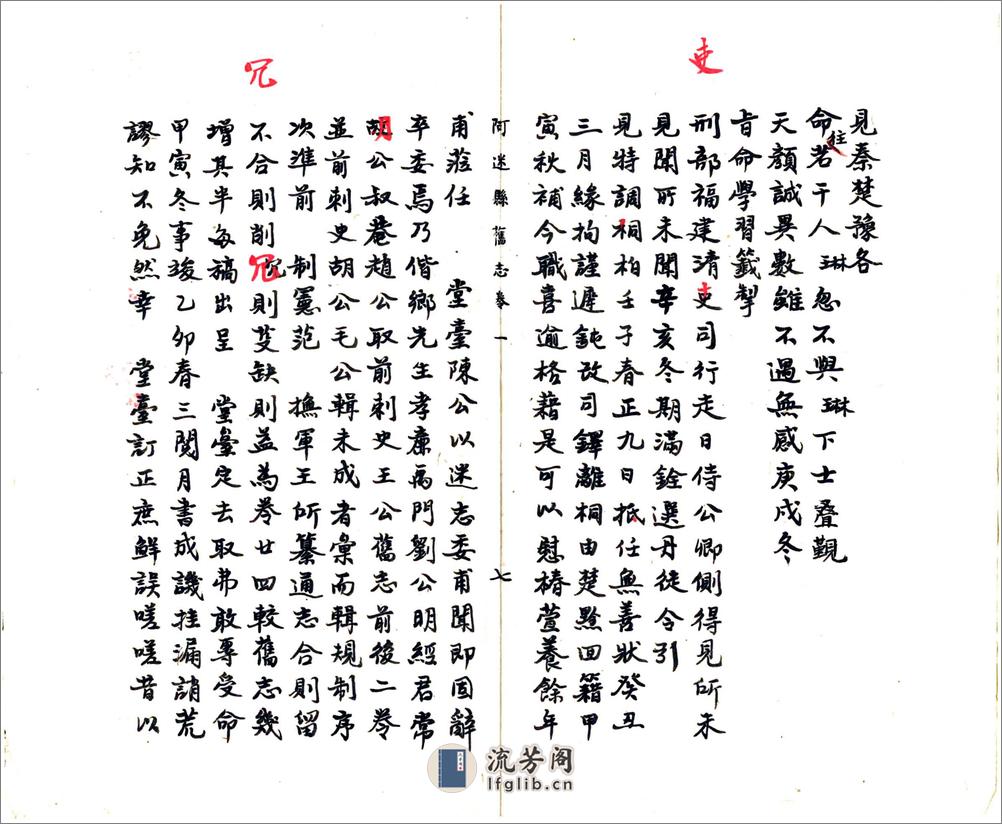 吏
見秦楚豫各
命往若干人琳忽不與琳下士疊覲
天顏誠異數雖不過無感庚戌冬
旨命學習籤掣
刑部福建清吏司行走日侍公卿側得見所未
見聞所未聞辛亥冬期滿銓選丹徒令引
見特調桐柏壬子春正九日抵任無善狀癸丑
三月緣拘謹遲鈍改司鐸離桐由楚黔回籍甲
寅秋補今職喜逾格藉是可以慰椿萱養餘年
阿迷縣舊志卷一
七
冗
甫蒞任 堂臺陳公以迷志委甫聞即固辭
卒委焉乃偕鄉先生孝廉禹門劉公明經君常
胡公叔菴趙公取前刺史王公舊志前後二卷
並前刺史胡公毛公輯未成者彙而輯規制序
次準前 制憲范 撫軍王所纂通志合則留
不合則削冗則芟缺則益為卷廿四較舊志幾
增其半每稿出呈 堂臺定去取弗敢專受命
甲寅冬事竣乙卯春三閱月書成譏挂漏誚荒
謬知不免然幸 堂臺訂正庶鮮誤嗟嗟昔以
流芳阁
lfglib.cn